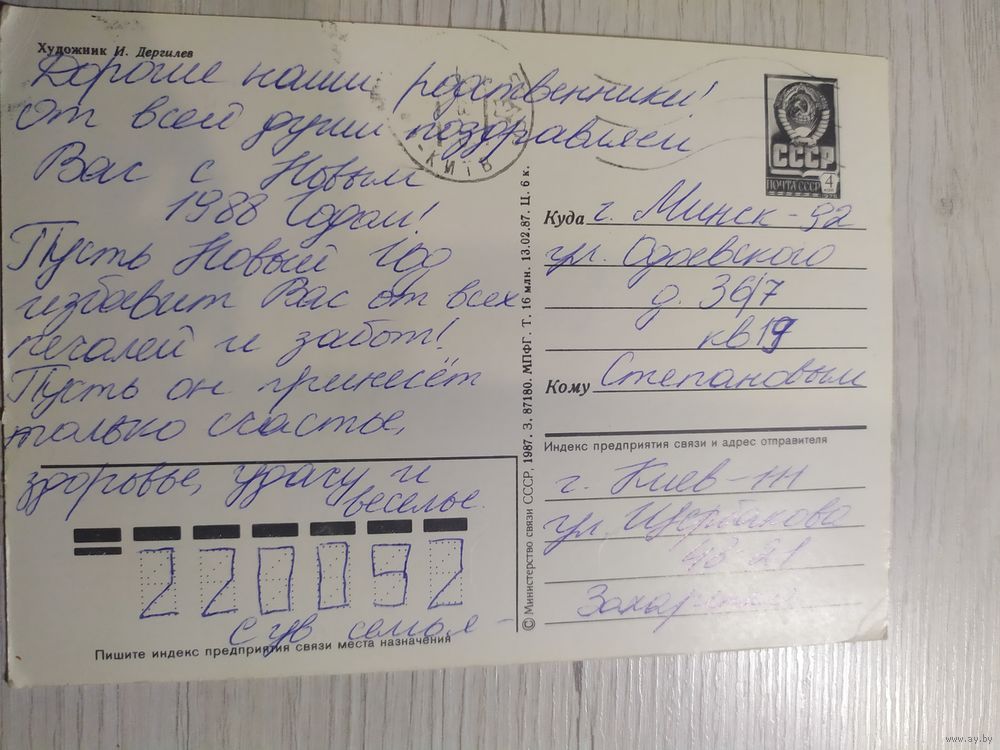 Художник И. Дергилев
Дорогие наши родственники!
от всей души поздравляем
Вас с Новым
1988 Годом!
Пусть Новый Год
избавит Вас от всех
печалей и забот!
Пусть он принесёт
только счастье,
здоровье, удачу и
веселье.
220092
с ув семья -
Пишите индекс предприятия связи места назначения
© Министерство связи СССР, 1987. З. 87180. МПФГ. Т. 16 млн. 13.02.87. Ц. 6 к.
КИЇВ
СССР
ПОЧТА СССР
4
Куда г. Минск - 92
ул. Одоевского
д. 36/7
кв 19
Кому Степановым
Индекс предприятия связи и адрес отправителя
г. Киев-
ул. Щербакова
www.ay.by